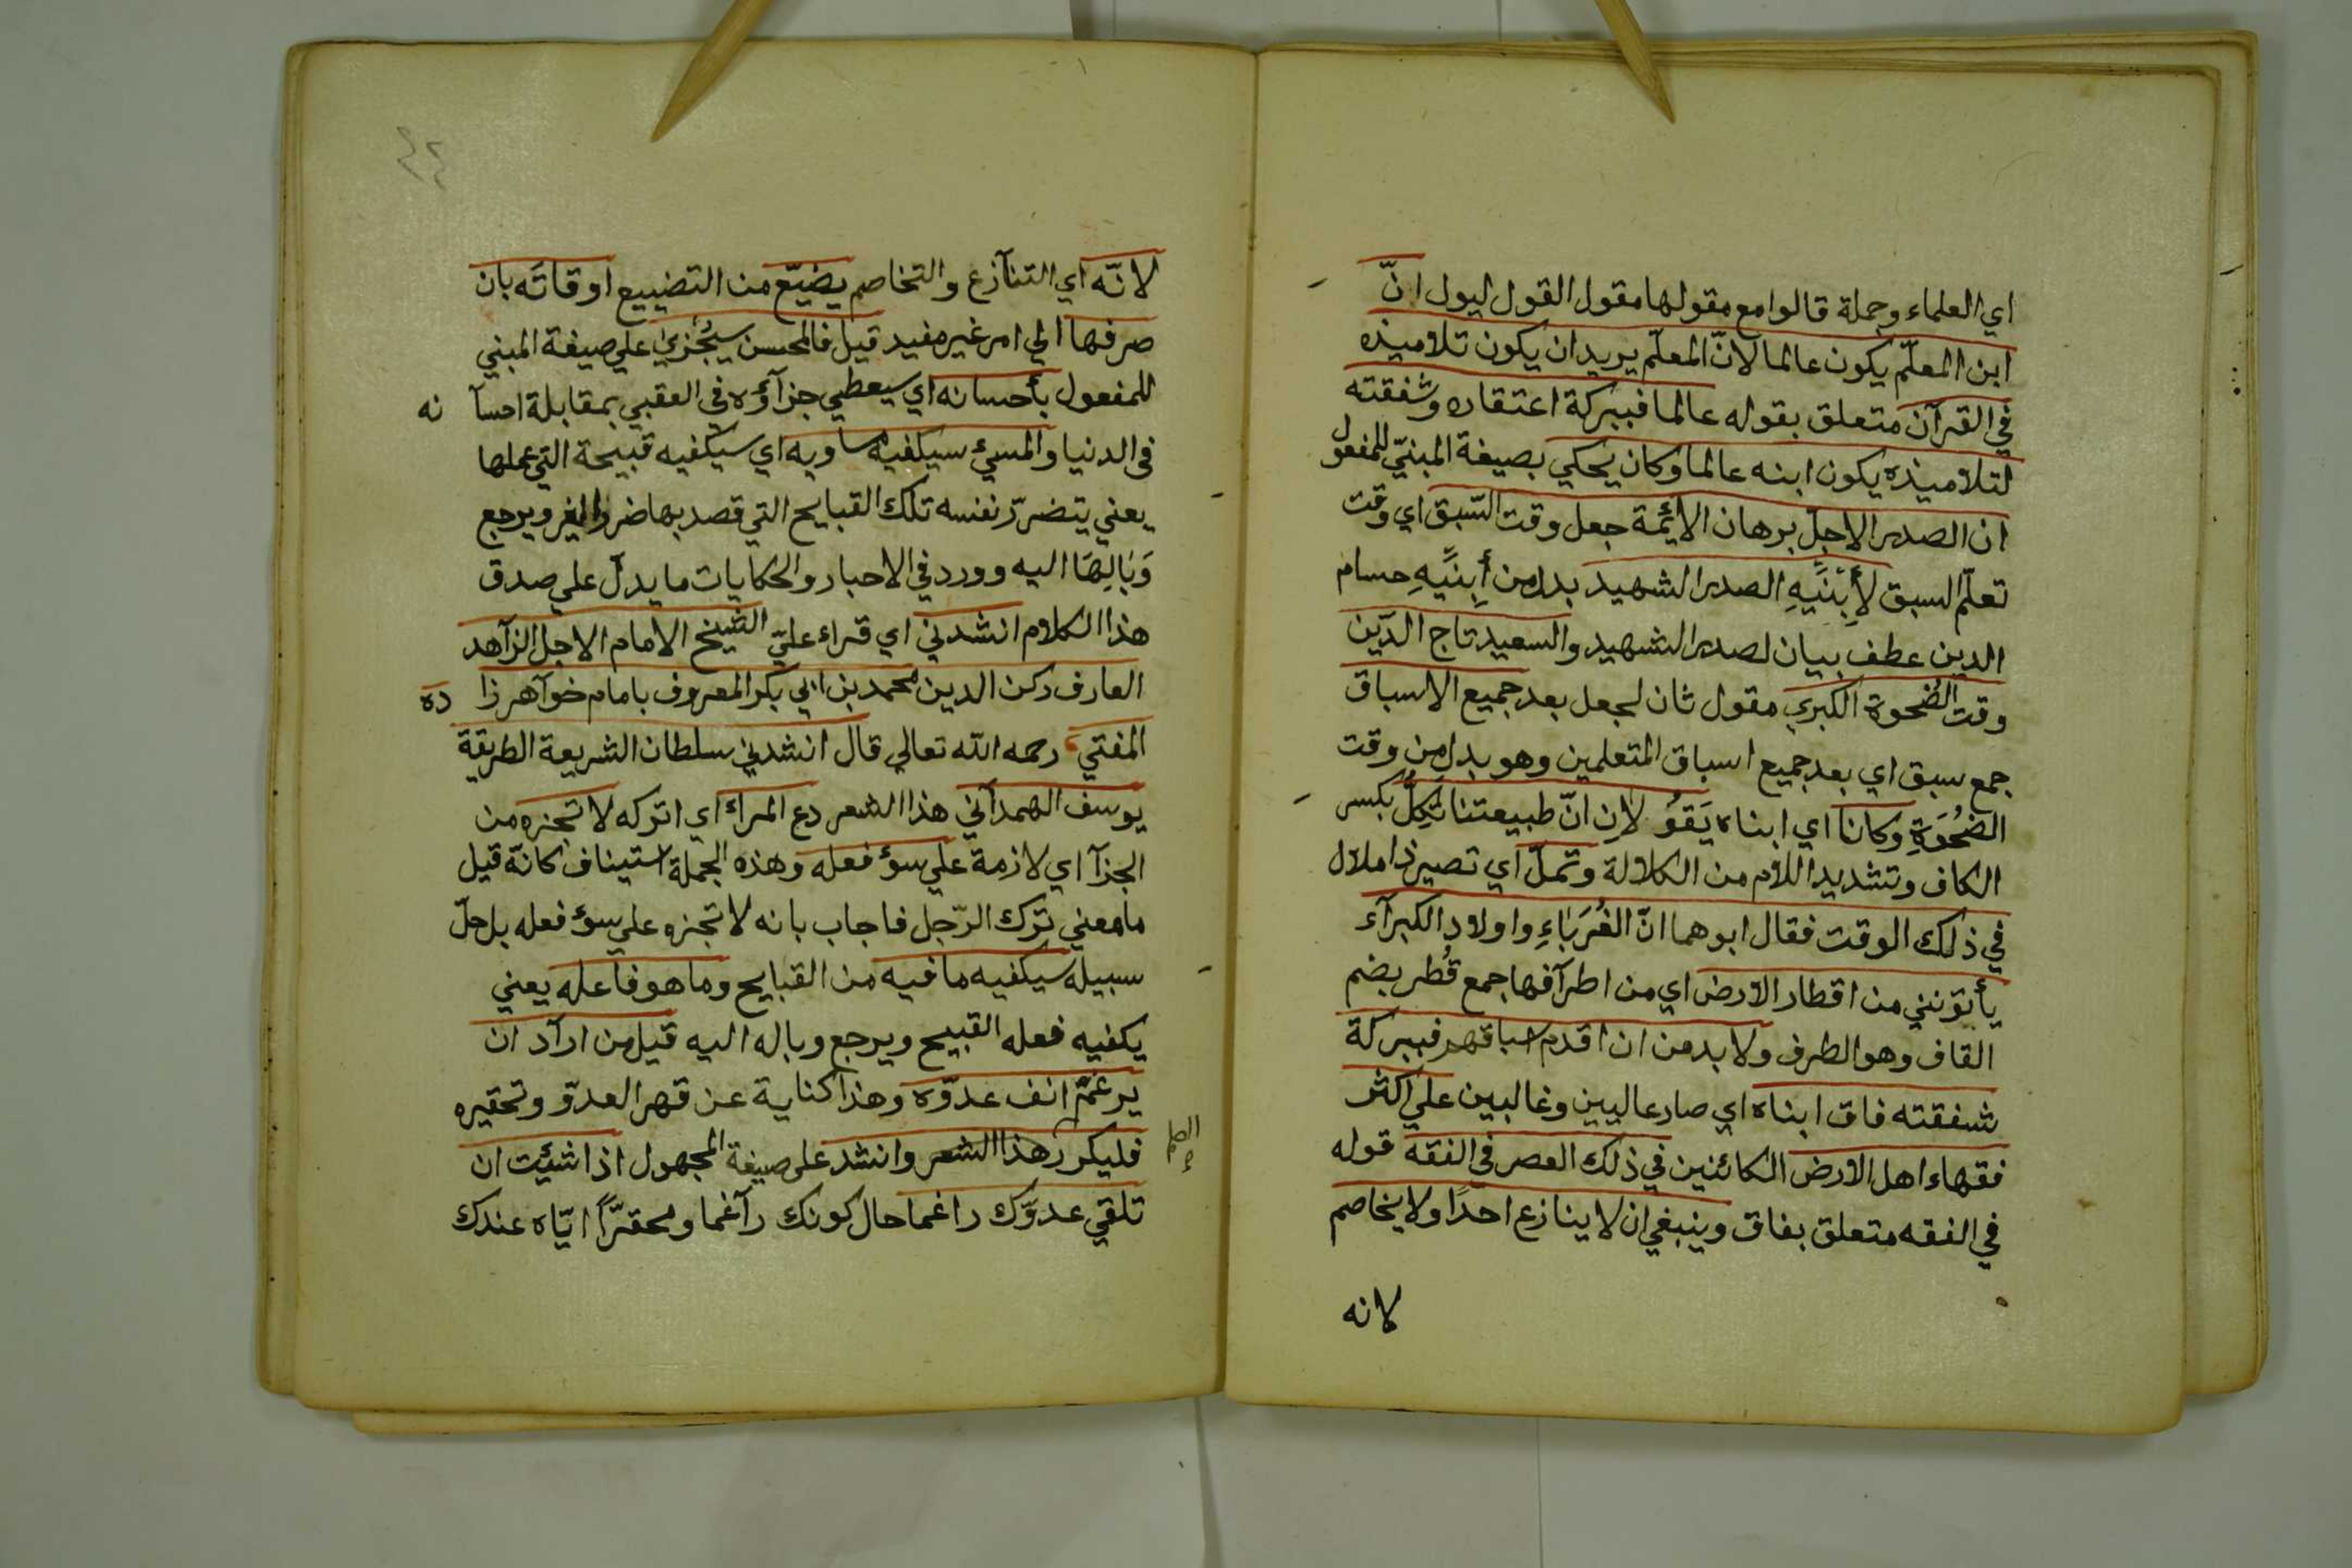 اي العلماء وجملة قالوا مع مقولها مقول القول ليول انّ
ابن المعلّم يكون عالما لانّ المعلّم يريد ان يكون تلاميذه
في القرآن متعلق بقوله عالما فببركة اعتقاده وشفقته
لتلاميذه يكون ابنه عالما وكان يحكي بصيغة المبنيّ للمفعول
ان الصدر الاجلّ برهان الائمّة جعل وقت السّبق اي وقت
تعلّم السبق لأبنَيهِ الصدر الشهيد بدل من أبنَيهِ حسام
الدين عطف بيان لصدر الشهيد والسعيد تاج الدّين
وقت الضُحوة الكبري مقول ثان لجعل بعد جميع الاسباق
جمع سبق اي بعد جميع اسباق المتعلمين وهو بدل من وقت
الضُحُوَةِ وكانا اي ابناه يَقوُلانِ انّ طبيعتنا تَكِلُّ بكسر
الكاف وتشديد اللام من الكلالة وتملّ اي تصير ذا ملال
في ذلك الوقت فقال ابوهما انّ الغُرَبَاءِ واولادِ الكبرآء
يأتونني من اقطار الارض اي من اطرآفها جمع قُطر بضم
القاف وهو الطرف ولا بد من ان اقدم اسباقهم فببركة
شفقته فاق ابناه اي صار عاليين وغالبين علي اكثر
فقهاء اهل الارض الكائنين في ذلك العصر في الفقه قوله
في الفقه متعلق بفاق وينبغي ان لا ينازع احدًا ولا يخاصم
لانه
٤٢
لانّه اي التنآزع والتخاصم يضيّع من التضييع اوقاتَه بان
صرفها الي امر غير مفيد قيل فالمحسن سيُجزيٰ علي صيغة المبني
للمفعول بأحسانه اي سيعطي جزآؤه في العقبي بمقابلة احسآ نه
في الدنيا والمسئ سيكفيه مساويه اي سيكفيه قبيحة التي عملها
يعني يتضرّر نفسه تلك القبايح التي قصد بها ضرر الغير ويرجع
وَبَالِهَا اليه وورد في الاحبار والحكايات ما يدلّ علي صدق
هذا الكلام انشدني اي قراء عليّ الشيخ الامام الاجل الزآهد
العارف ركن الدين محمد بن ابي بكر المعروف بامام خوآهر زا ده
المفتي رحمه الله تعالي قال انشدني سلطان الشريعة الطريقة
يوسف الهمدآني هذا الشعر دع المرأ اي اتركه لا تجزه من
الجزآ اي لازمة علي سوٴ فعله وهذه الجملة استيناف كانّه قيل
ما معني ترك الرّجل فاجاب بانه لا تجزه علي سوٴ فعله بل حلّ
سبيله سيكفيه ما فيه من القبايح وما هو فاعله يعني
يكفيه فعله القبيح ويرجع وباله اليه قيل من ارآد ان
يرغمّ انف عدوّه وهذا كناية عن قهر العدوّ وتحقيره
فليكرر هذا الشعر وانشد علي صيغة المجهول اذا شئيت ان
تلقي عدوّك راغما حال كونك رآغما ومحقرًّا ايّاه عندك